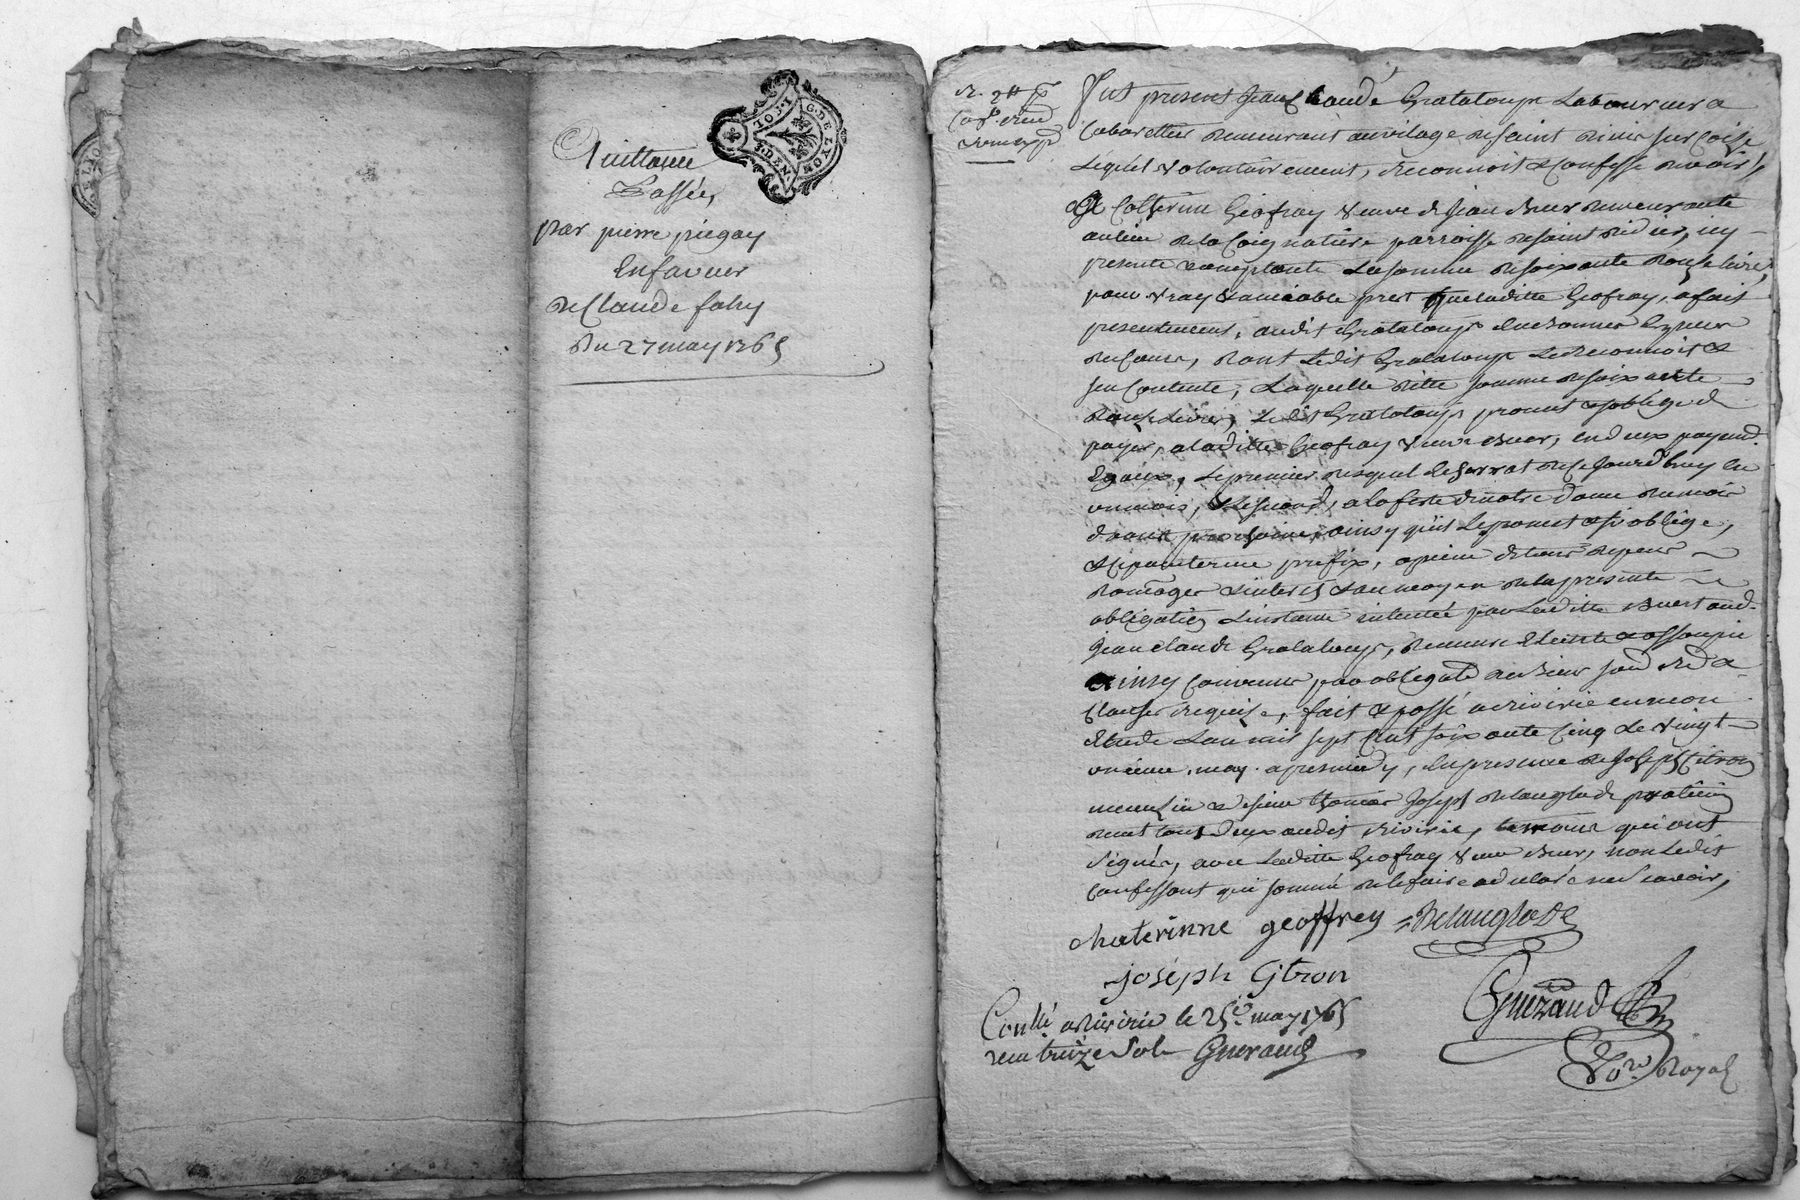 Quittance
Passée,
par pierre piegay
Enfaveur
de Claude fahy
Du 27 may 1765
G. DE LYON
Fut present Jean Claude Grataloup Laboureur &
Cabarettier demeurant au vilage de saint Didier sur Coise
Lequel volontairement, reconnoit & Confesse devoir,
a Catherine Geofray veuve de Jean Buer demeurante
au lieu de la Coignatiere parroisse de saint Didier, icy
presente acceptante La somme de soixante douze livres
pour vray & amiable prest que laditte Geofray, a fait
presentement, audit Grataloup
dont Ledit Grataloup Le Reconnoit &
sen Contente, Laquelle ditte somme de soixante
douze Livres, Ledit Grataloup promet & soblige de
payer, a laditte Geofray veuve Buer, en deux payemd.
Egaux, Le premier desquel se ferrat de Ce Jourd'huy en
un mois, & Le second, a la feste de notre dame du mois
d'aout prochaine, ainsy qu'il Le promet & si oblige,
prefix, a peine de tous depens
Domages & interets & au moyen de la presente
obligation L'instance intentée par Laditte Buer Contre
Jean claude Grataloup, demeure Eteinte & assoupie
ainsy Convenu par obligation de biens
Clauses requise, fait & passé a Riverie en mon
Etude L'an mil sept Cent soixante Cinq Le vingt
unieme may apresmidy, En presence de Joseph Citron
& sieur Thomas Joseph Delanglade praticien
demt tous deux audit Riverie, temoins qui ont
signés, avec Laditte Geofray veuve Buer, non Ledit
Confessant qui sommé de le faire a declaré ne savoir,
chaterinne geoffrey Delanglade
joseph Citron
Guerand
Conllé a Riverie le 25e may 1765
reçu treize sols Guerand
Nore. Royal